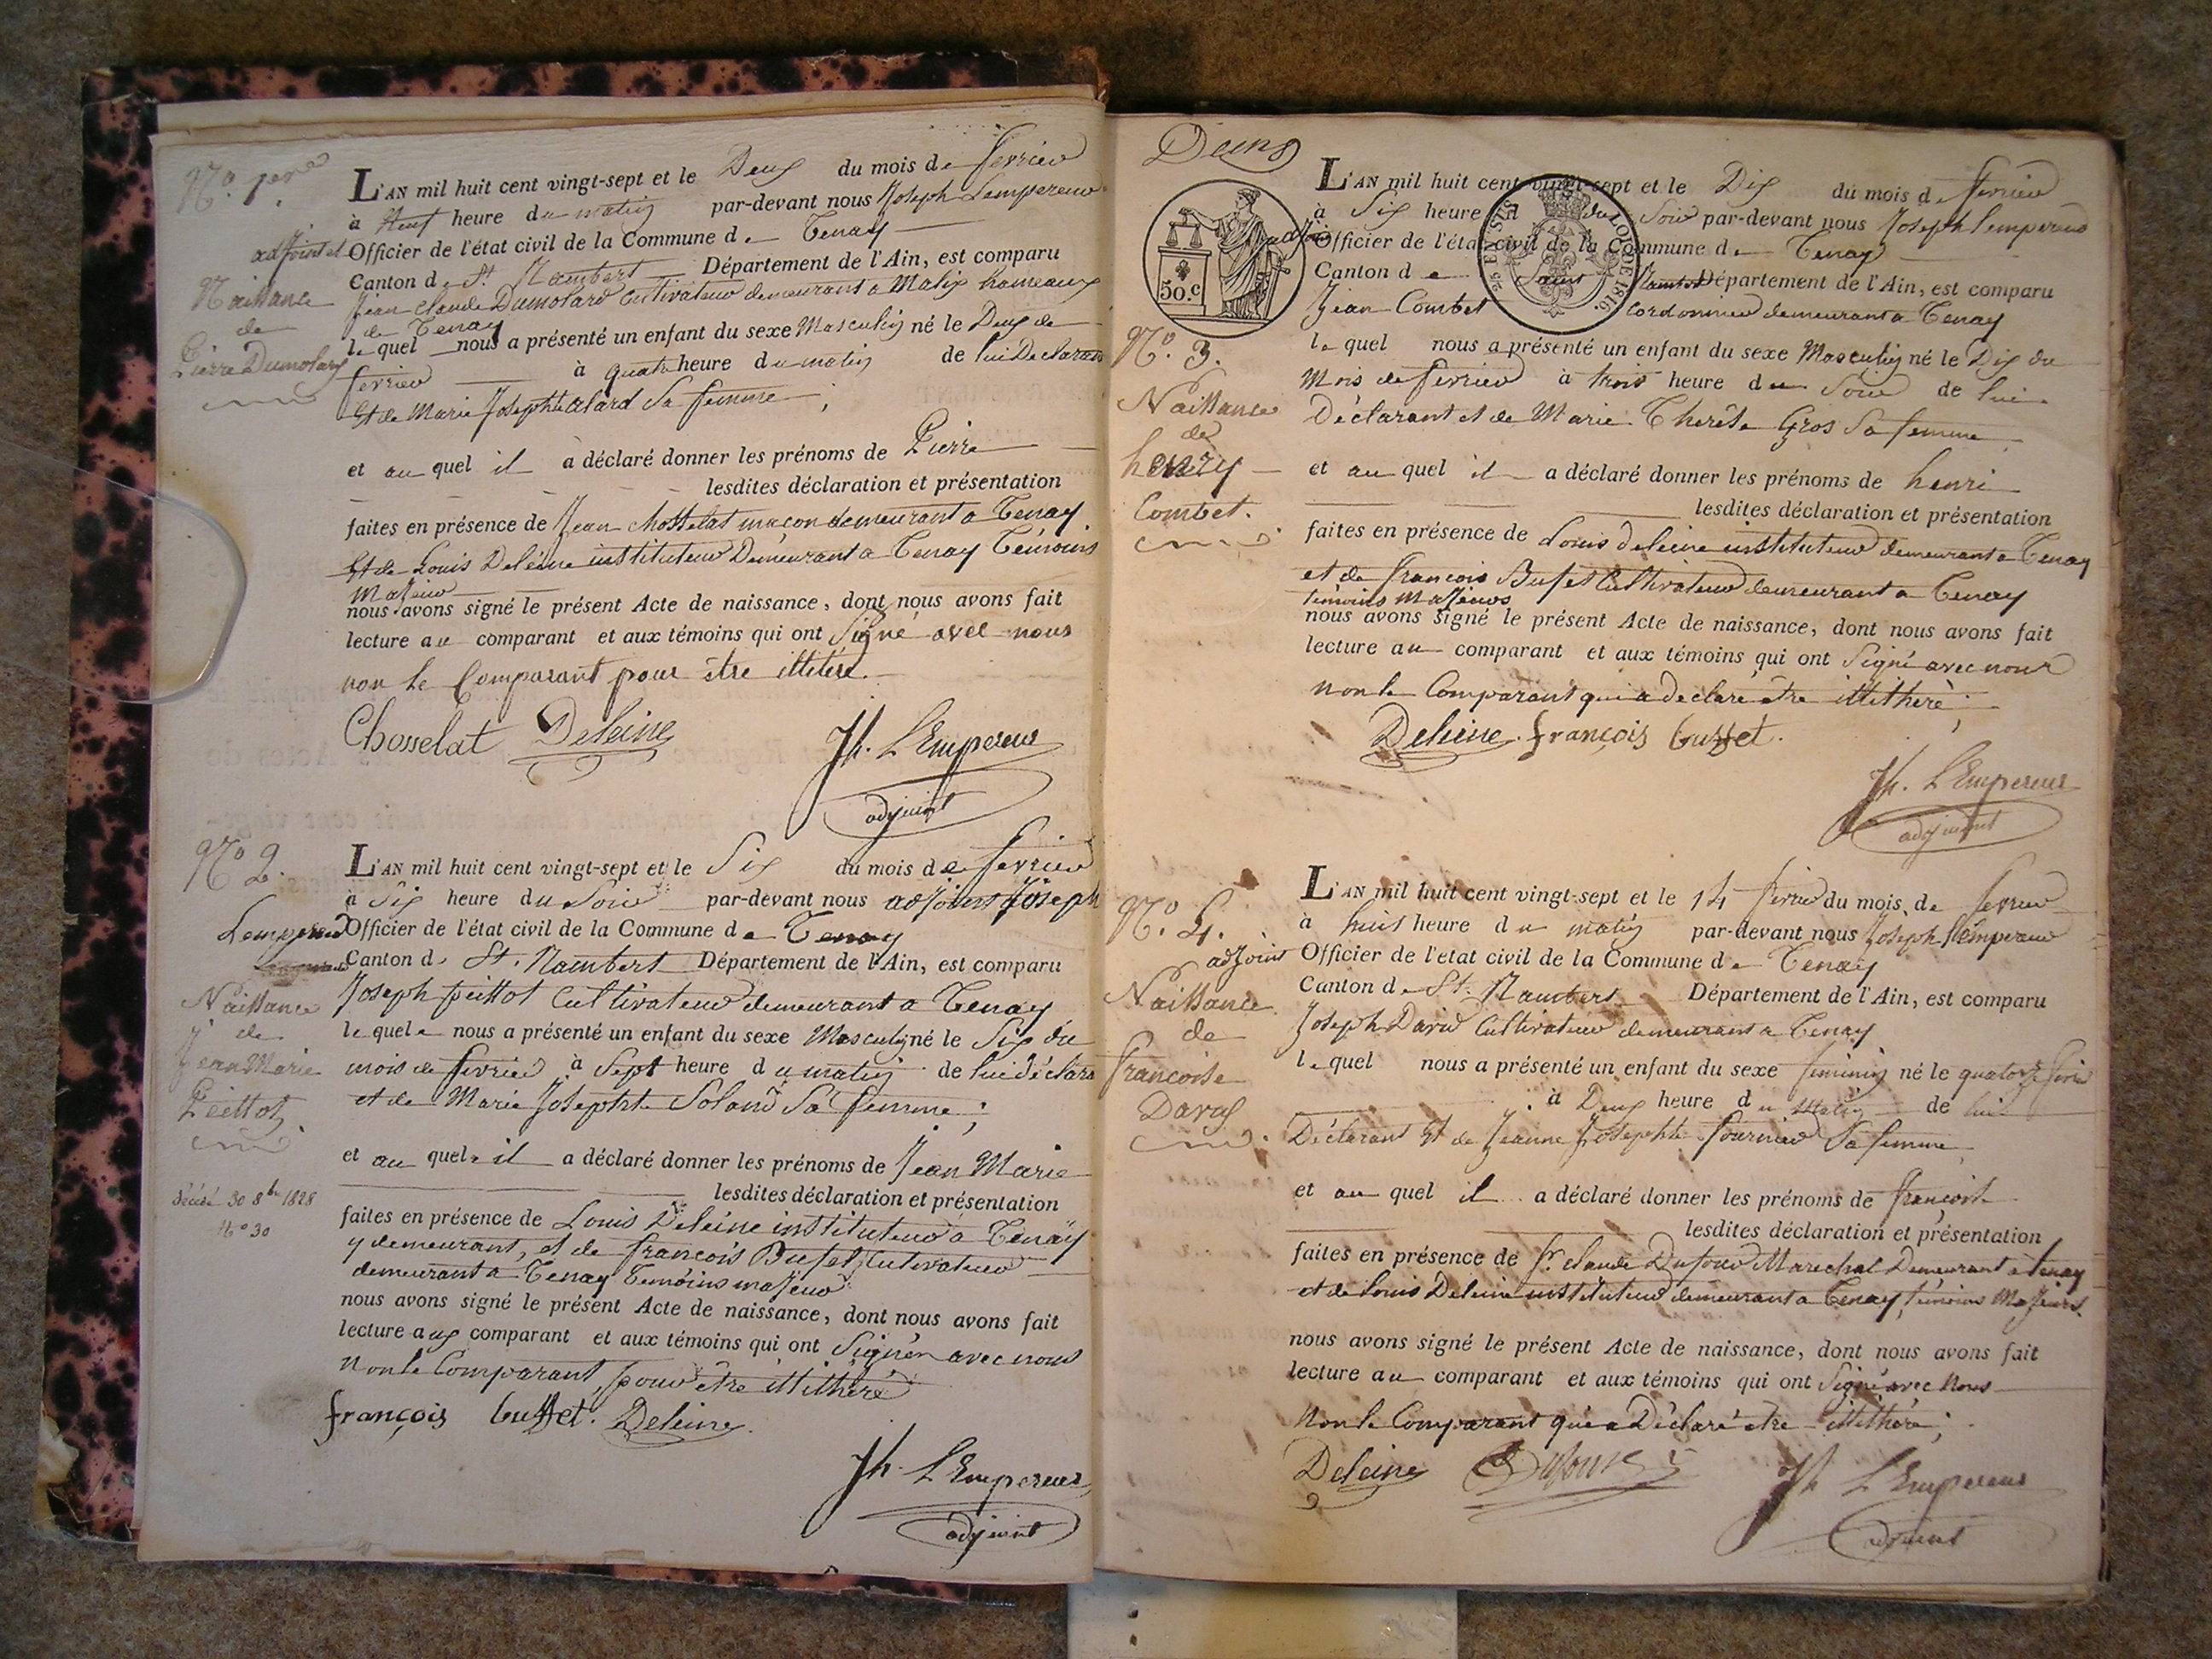 N.o 1.ere
L'AN mil huit cent vingt-sept et le Deux du mois de ferrier
à Neuf heure du matin par-devant nous Joseph Lempereur
adjoint et Officier de l'état civil de la Commune de Tenay
Canton de St. Rambert Département de l'Ain, est comparu
Jean Claude Dumolard Cultivateur demeurant a Malix hameaux
de Tenay
le quel nous a présenté un enfant du sexe Masculin né le Deux de
ferrier à quatre heure du matin de lui Declarant
Et de Marie Josephte alard Sa femme;
et au quel il a déclaré donner les prénoms de Pierre
lesdites déclaration et présentation
faites en présence de Jean Chosselat macon demeurant a Tenay
Et de Louis Deleine instituteur Demeurant a Tenay Temoins
Majeur
nous avons signé le présent Acte de naissance, dont nous avons fait
lecture au comparant et aux témoins qui ont Signé avec nous
non le Comparant pour être illitére.
Chosselat Deleine Jh. LEmpereur
adjoint
Naissance
de
Pierre Dumolard
N.o 2.
L'AN mil huit cent vingt-sept et le Six du mois de ferrier
à Six heure du Soir par-devant nous adjoint Joseph
Lempereur Officier de l'état civil de la Commune de Tenay
Canton de St. Rambert Département de l'Ain, est comparu
Joseph peittot Cultivateur demeurant a Tenay
le quel nous a présenté un enfant du sexe Masculin né le Six du
mois de ferrier à Sept heure du matin de lui déclara
et de Marie Josephte Soland Sa femme;
et au quel il a déclaré donner les prénoms de Jean Marie
lesdites déclaration et présentation
faites en présence de Louis Deleine instituteur a Tenay
y demeurant, et de francois Bufet Cutivateur
demeurant a Tenay Temoins majeur
nous avons signé le présent Acte de naissance, dont nous avons fait
lecture aux comparant et aux témoins qui ont Signér avec nous
non le Comparant, pour être illithéré
françois buffet. Deleine
Jh. LEmpereur
adjoint
Naissance
de
Jean Marie
Peittot
décédé 30 8bre 1828
N° 30
Deux
50.c
L'AN mil huit cent vingt-sept et le Dix du mois de ferrier
à Six heure du Soir par-devant nous Joseph Lempereur
adjoint Officier de l'état civil de la Commune de Tenay
Canton de Saint Rambert Département de l'Ain, est comparu
Jean Combet Cordonnier demeurant a Tenay
le quel nous a présenté un enfant du sexe Masculin né le Dix du
Mois de ferrier à trois heure du Soir de lui
Déclarant et de Marie Therése Gros Sa femme
et au quel il a déclaré donner les prénoms de henri
lesdites déclaration et présentation
faites en présence de Louis deleine instituteur demeurant a Tenay
et de francois Bufet Cultivateur demeurant a Tenay
témoins Majeurs
nous avons signé le présent Acte de naissance, dont nous avons fait
lecture au comparant et aux témoins qui ont Signé avec nous
non le Comparant qui a declaré être illithéré;
Deleine. françois buffet.
Jh. LEmpereur
adjoint
N.o 3.
Naissance
de
henry
Combet.
N.o 4.
L'AN mil huit cent vingt-sept et le 14 ferrier du mois de ferrier
à huit heure du matin par-devant nous Joseph Lempereur
adjoint Officier de l'etat civil de la Commune de Tenay
Canton de St. Rambert Département de l'Ain, est comparu
Joseph David Cultivateur demeurant a Tenay
le quel nous a présenté un enfant du sexe feminin né le quatorze ferrier
à Deux heure du Matin de lui
Déclarant Et de Jeanne Josephte fournier Sa femme
et au quel il a déclaré donner les prénoms de françoise
lesdites déclaration et présentation
faites en présence de Sr. claude Dufour Marechal Demeurant à tenay
et de Louis Deleine instituteur demeurant a Tenay, témoins Majeurs
nous avons signé le présent Acte de naissance, dont nous avons fait
lecture au comparant et aux témoins qui ont Signé avec Nous
Non le Comparant qui a Déclaré etre illithére;
Deleine Dufour Jh LEmpereur
adjoint
Naissance
de
francoise
David